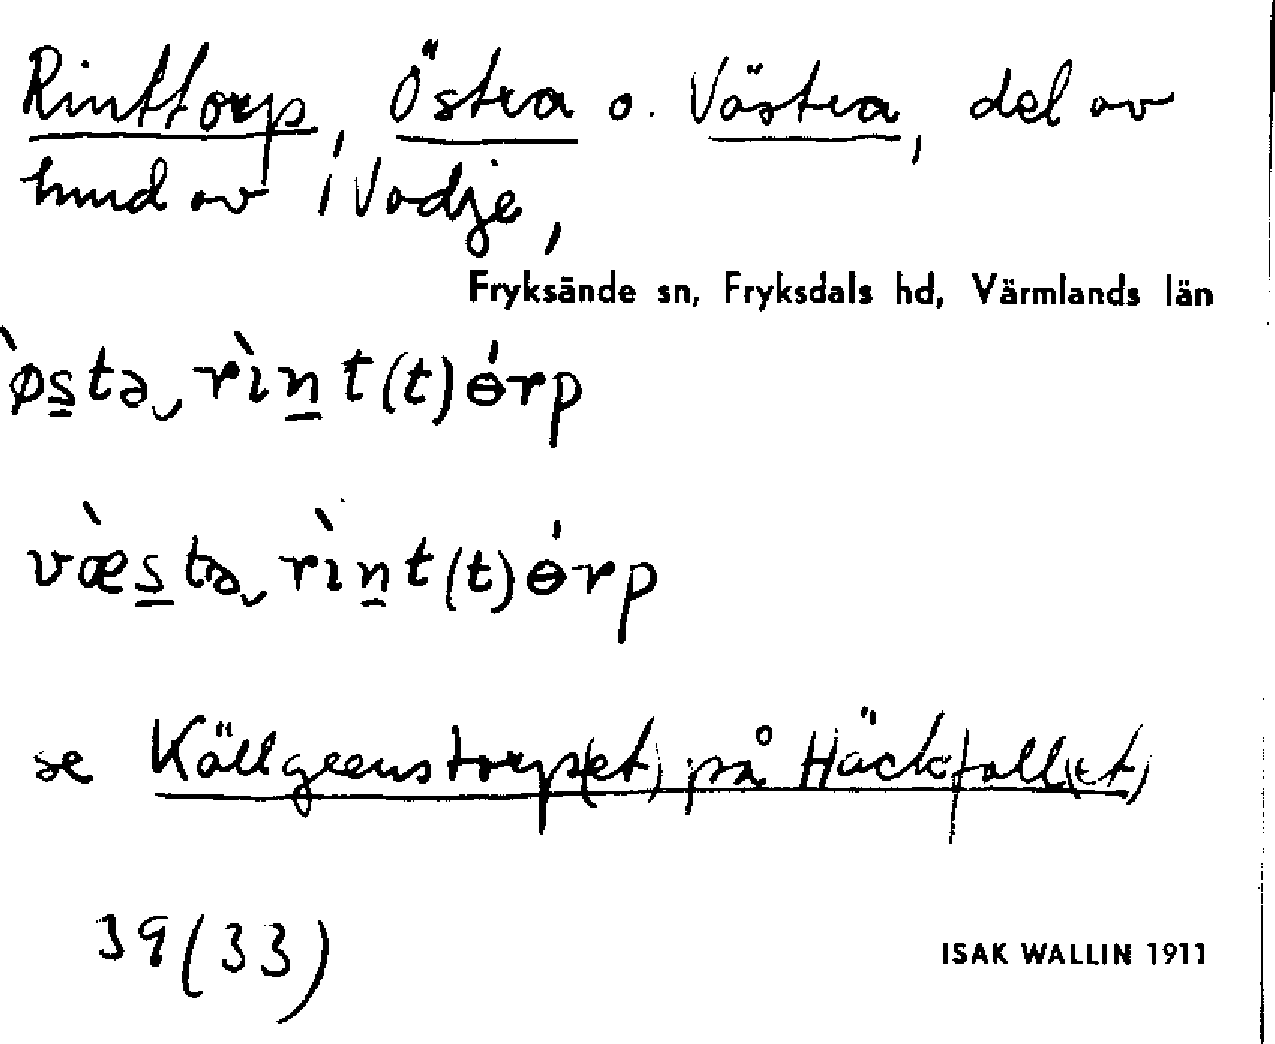 Rinttorp, Östra o. Västra, del av
hmd av i Vadje,
Fryksände sn, Fryksdals hd, Värmlands län
ø̀s̲tə‿rìn̲t(t)ɵ́rp
væ̀s̲tə‿rìn̲t(t)ɵ́rp
se Källgrenstorp(et) på Häckfall(et)
39(33)
ISAK WALLIN 1911